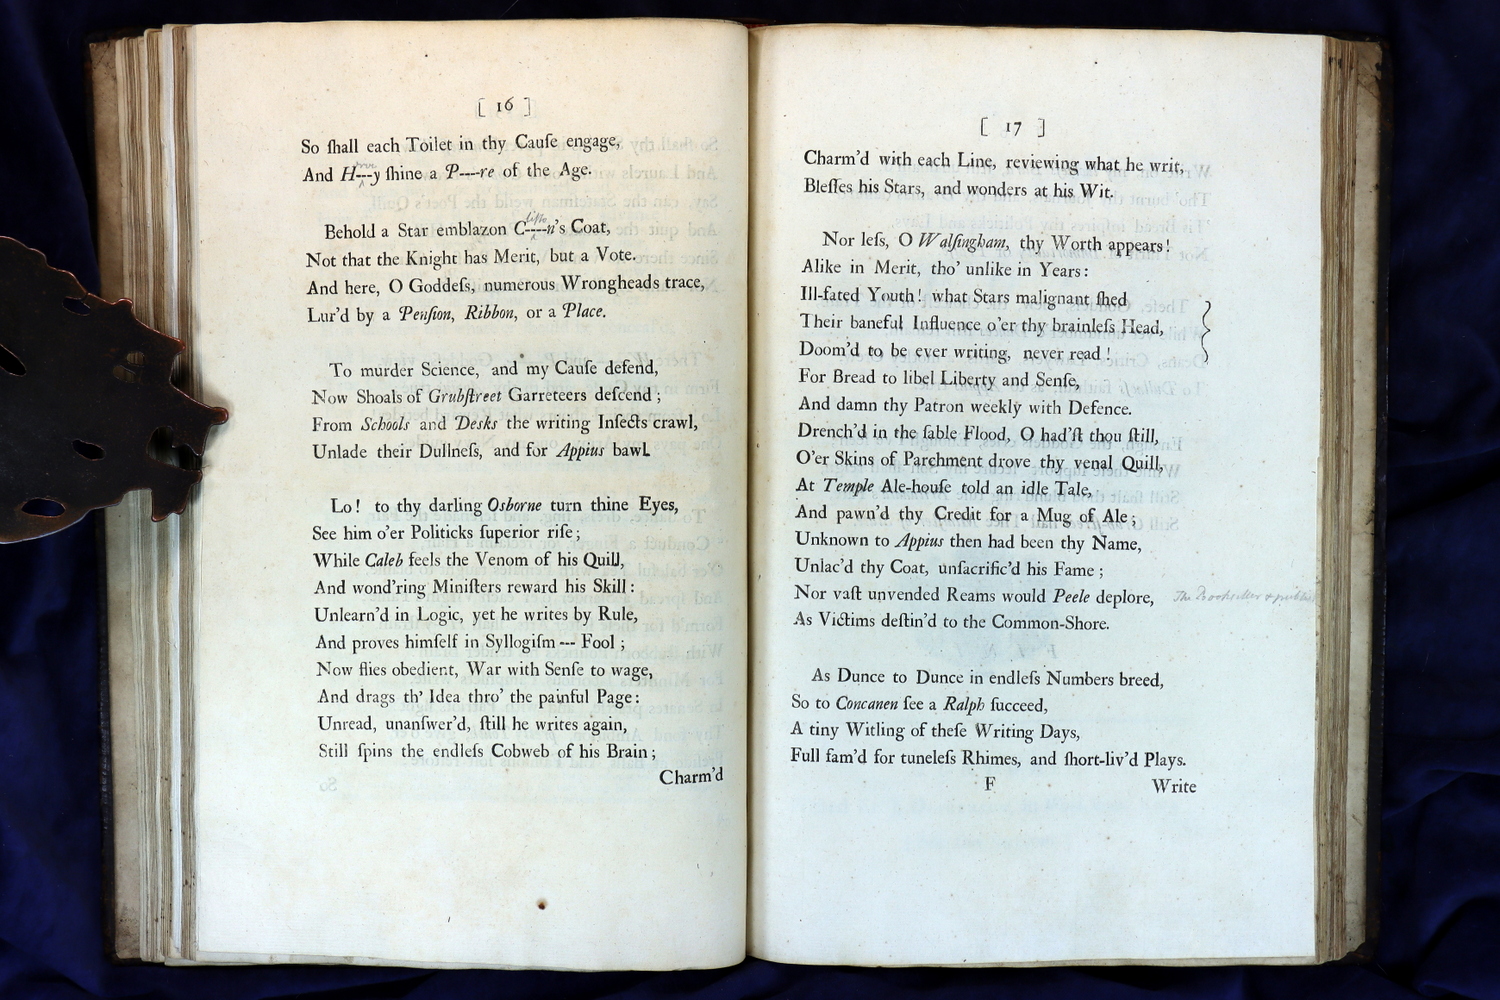 [ 16 ]
So ſhall each Toilet in thy Cauſe engage,
And H---y ſhine a P----re of the Age.
Behold a Star emblazon C----n's Coat,
Not that the Knight has Merit, but a Vote.
And here, O Goddeſs, numerous Wrongheads trace,
Lur'd by a Penſion, Ribbon, or a Place.
To murder Science, and my Cauſe defend,
Now Shoals of Grubſtreet Garreteers deſcend;
From Schools and Desks the writing Inſects crawl,
Unlade their Dullneſs, and for Appius bawl.
Lo! to thy darling Osborne turn thine Eyes,
See him o'er Politicks ſuperior riſe;
While Caleb feels the Venom of his Quill,
And wond'ring Miniſters reward his Skill:
Unlearn'd in Logic, yet he writes by Rule,
And proves himſelf in Syllogiſm --- Fool;
Now flies obedient, War with Senſe to wage,
And drags th' Idea thro' the painful Page:
Unread, unanſwer'd, ſtill he writes again,
Still ſpins the endleſs Cobweb of his Brain;
Charm'd
[ 17 ]
Charm'd with each Line, reviewing what he writ,
Bleſſes his Stars, and wonders at his Wit.
Nor leſs, O Walſingham, thy Worth appears!
Alike in Merit, tho' unlike in Years:
Ill-fated Youth! what Stars malignant ſhed
Their baneful Influence o'er thy brainleſs Head,
Doom'd to be ever writing, never read!
For Bread to libel Liberty and Senſe,
And damn thy Patron weekly with Defence.
Drench'd in the ſable Flood, O had'ſt thou ſtill,
O'er Skins of Parchment drove thy venal Quill,
At Temple Ale-houſe told an idle Tale,
And pawn'd thy Credit for a Mug of Ale;
Unknown to Appius then had been thy Name,
Unlac'd thy Coat, unſacrific'd his Fame;
Nor vaſt unvended Reams would Peele deplore, The Bookseller &
As Victims deſtin'd to the Common-Shore.
As Dunce to Dunce in endleſs Numbers breed,
So to Concanen ſee a Ralph ſucceed,
A tiny Witling of theſe Writing Days,
Full fam'd for tuneleſs Rhimes, and ſhort-liv'd Plays.
F Write